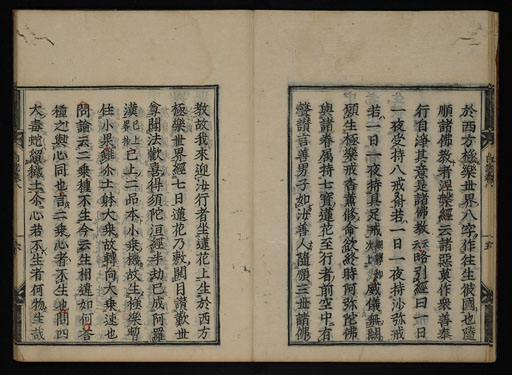 於西方極樂世界八字作往生彼國也隨
順諸佛教者涅槃經云諸惡莫作衆善奉
行自淨其意是諸佛教云略引經曰一日
一夜受持八戒齋若一日一夜持沙弥戒
若一日一夜持具足戒威儀無闕
願生極樂戒香薰修命欲終時阿弥陀佛
與諸眷属持七寶蓮花至行者前空中有
聲讃言善男子如汝善人隨順三世諸佛
教故我來迎汝行者坐蓮花上生於西方
極樂世界經七日蓮花乃敷開目讃歎世
尊聞法歡喜得須陀洹經半劫已成阿羅
漢已上二品本小乘機故生極樂暫
住小果雖尒土射大乘故轉向大乘速也
問論云二乘種不生今云生相違如何答
種之與心同也言二乘心者不生也問四
大毒蛇土尒心若不生者何物生哉